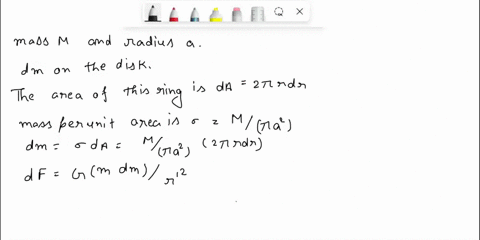 mass M and radius a.
dm on the disk.
The area of this ring is dA = 2πrdr
mass per unit area is σ = M/(πa²)
dm = σ dA = M/(πa²) (2πrdr)
dF = G(m dm)/r'²